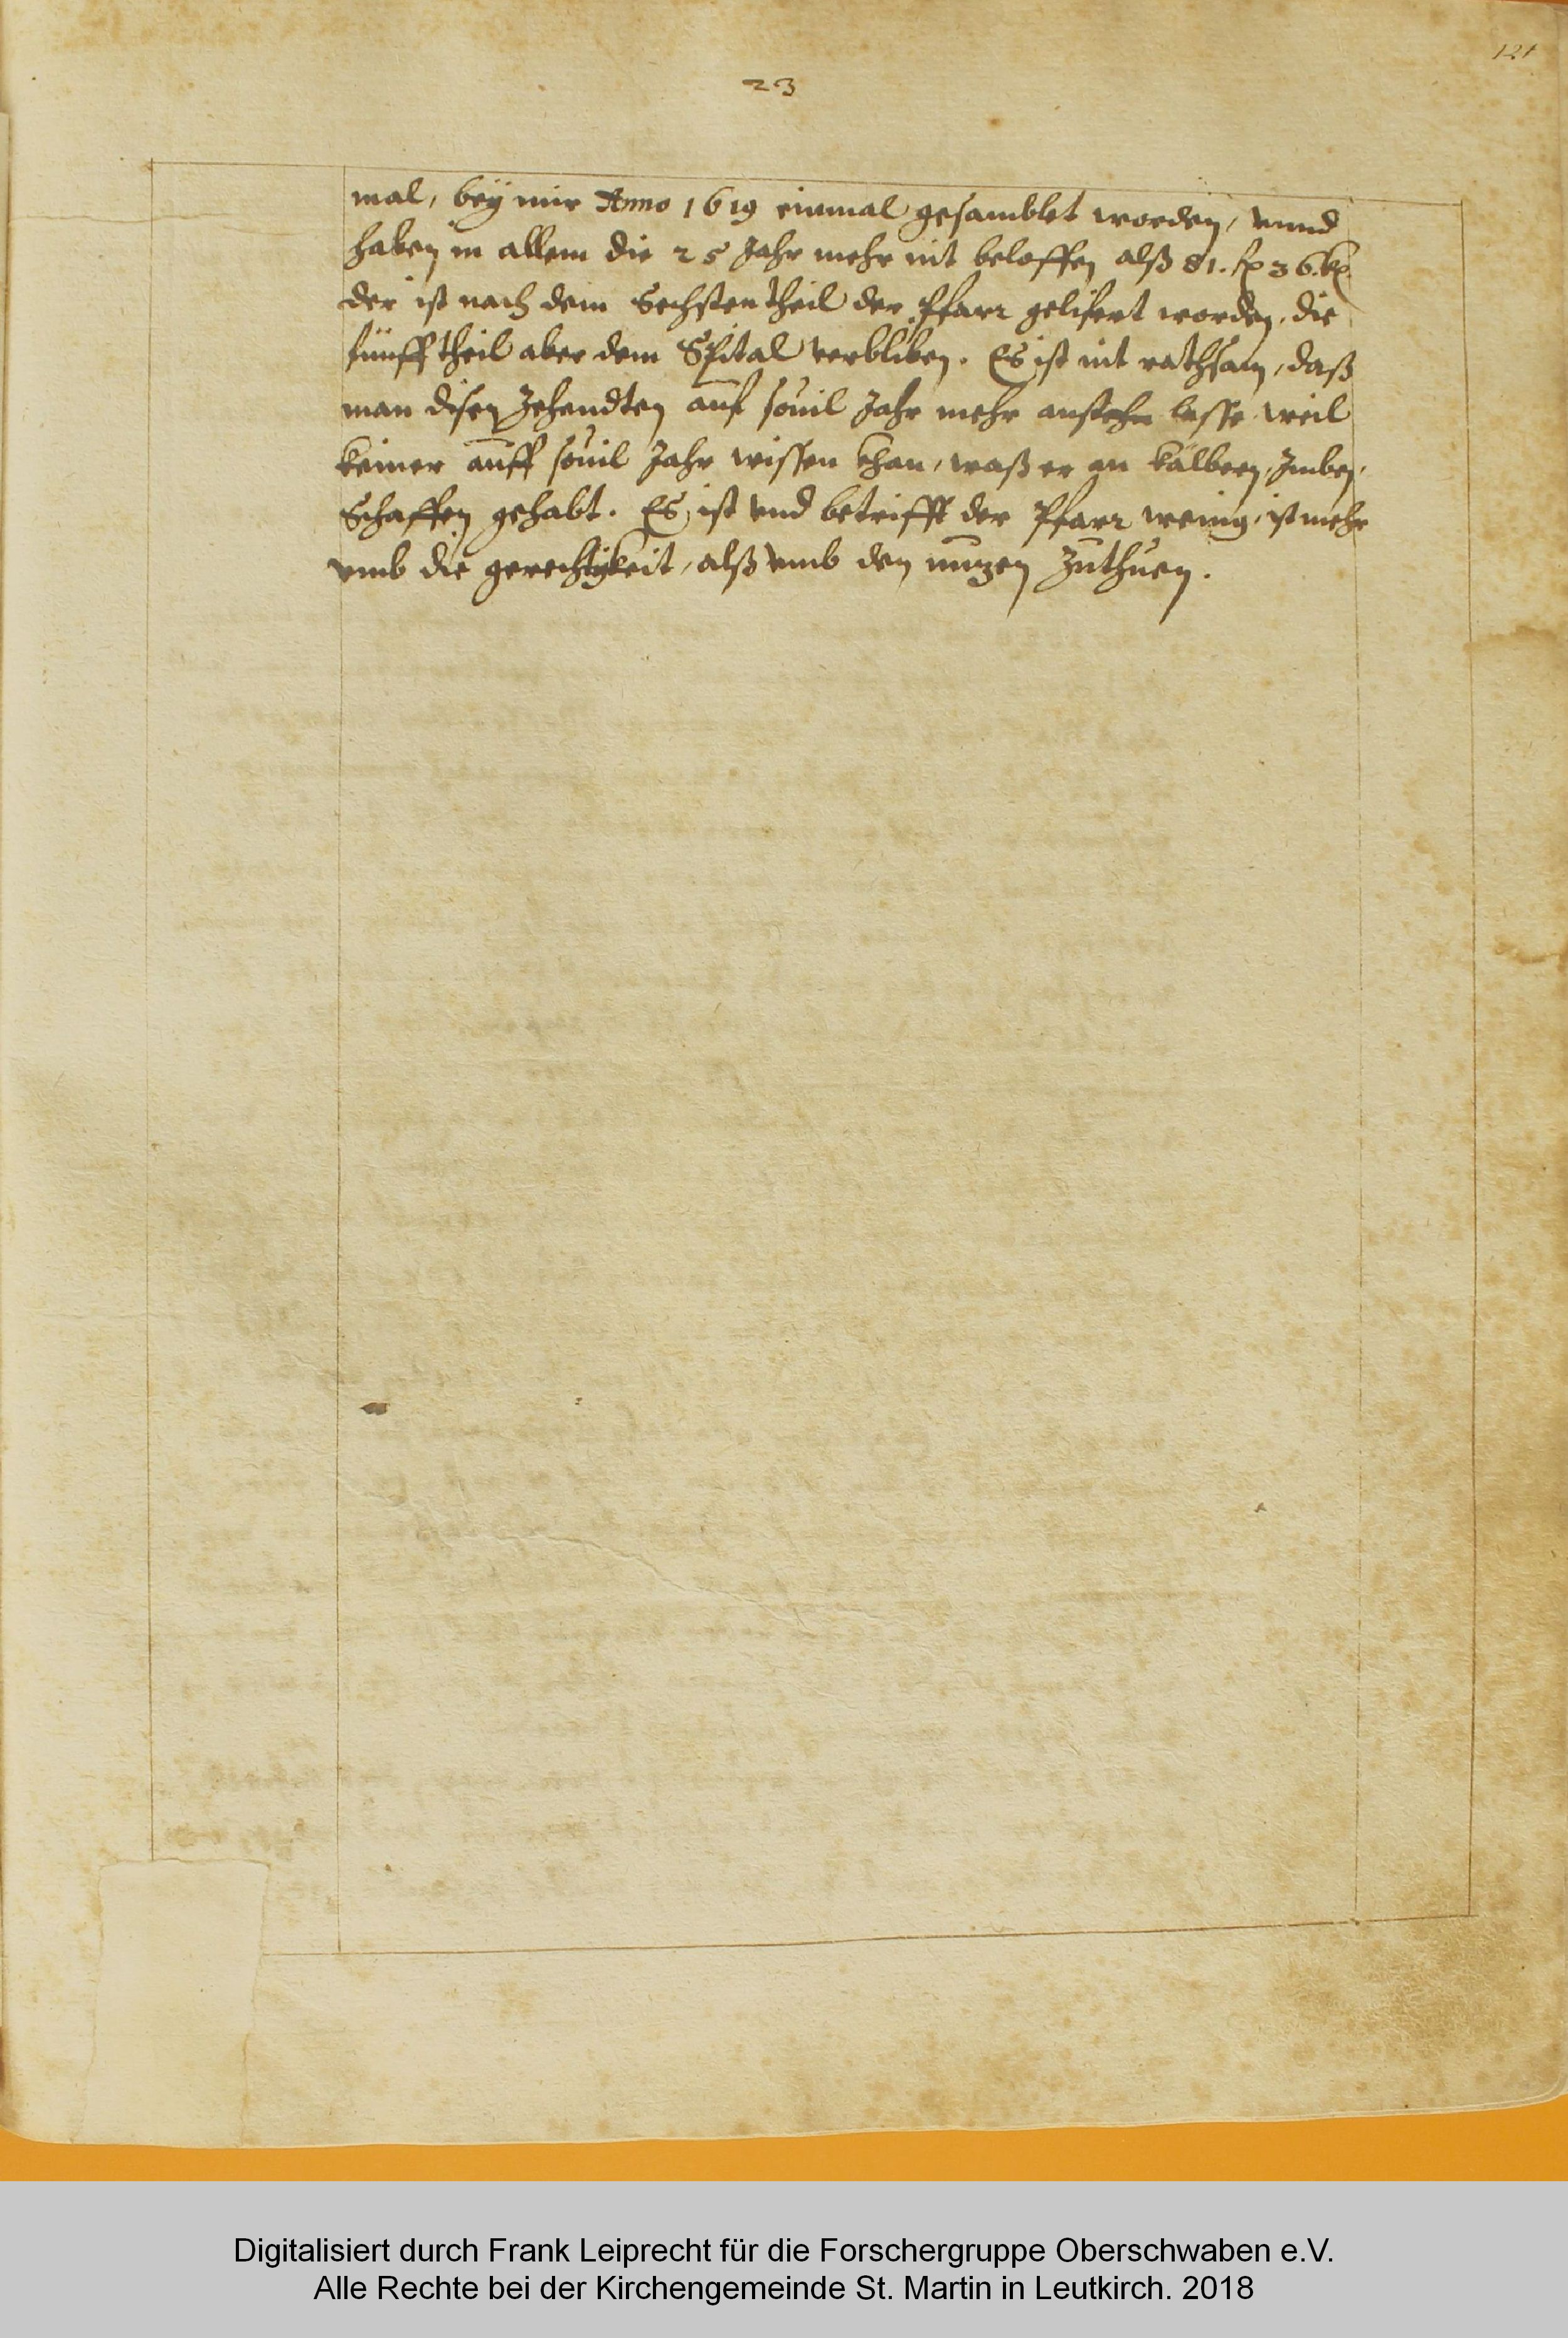 121
23
mal, bey mir Anno 1619 einmal gesamblet worden, vnnd
haben in allem die 25 Jahr mehr nit beloffen alß 81. fl 36. kr
der ist nach dem Sechsten theil der Pfarr gelifert worden, die
fünff theil aber dem Spital verbliben. Es ist nit rathsam, daß
man disen Zehendten auf souil Jahr mehr anstehn lasse, weil
keiner auff souil Jahr wissen khan, waß er an kälbern, Imben,
Schaffen gehabt. Es ist vnd betrifft der Pfarr wenig, ist mehr
vmb die gerechtigkeit, alß vmb den nuzen zuthuen.
Digitalisiert durch Frank Leiprecht für die Forschergruppe Oberschwaben e.V.
Alle Rechte bei der Kirchengemeinde St. Martin in Leutkirch. 2018